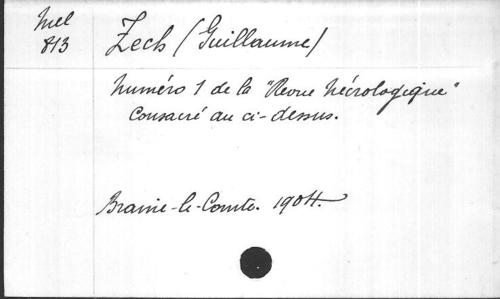 Mel
813
Zech (Guillaume)
Numéro 1 de la "Revue Nécrologique"
Consacré au ci-dessus.
Braine-le-Comte. 1904.